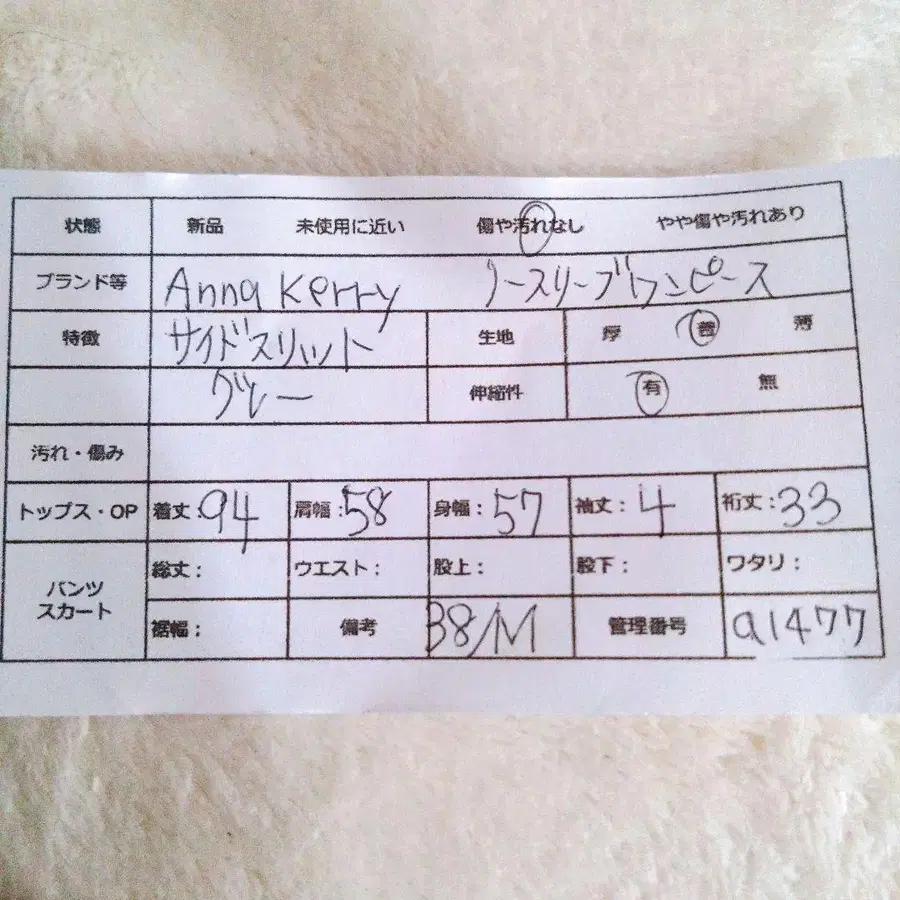 状態 新品 未使用に近い 傷や汚れなし やや傷や汚れあり
ブランド等 Anna Kerry ノースリーブワンピース
特徴 サイドスリット 生地 厚 普 薄
グレー 伸縮性 有 無
汚れ・傷み
トップス・OP 着丈:94 肩幅:58 身幅:57 袖丈:4 裄丈:33
パンツ スカート 総丈: ウエスト: 股上: 股下: ワタリ:
裾幅: 備考 38/M 管理番号 a1477